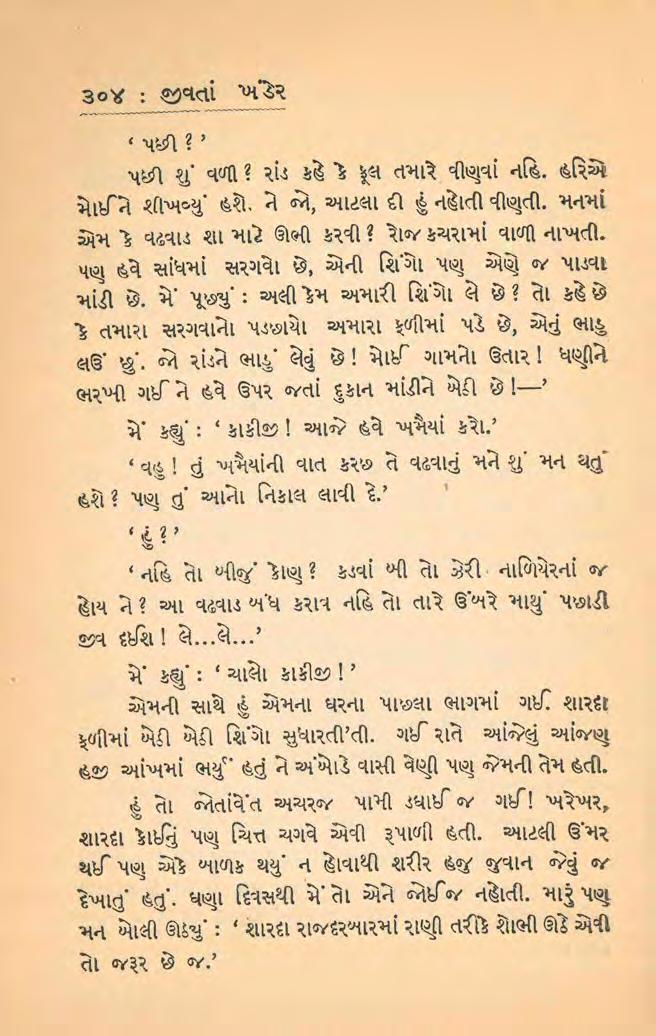 ૩૦૪ : જીવતાં ખંડેર
‘ પછી ? ’
પછી શું વળી ? રાંડ કહે કે ફૂલ તમારે વીણવાં નહિ. હરિએ
મોઈને શીખવ્યું હશે. ને જો, આટલા દી હું નહોતી વીણતી. મનમાં
એમ કે વઢવાડ શા માટે ઊભી કરવી ? રોજ કચરામાં વાળી નાખતી.
પણ હવે સાંધમાં સરગવો છે, એની શિંગો પણ એણે જ પાડવા
માંડી છે. મેં પૂછ્યું : અલી કેમ અમારી શિંગો લે છે ? તો કહે છે
કે તમારા સરગવાનો પડછાયો અમારા ફળીમાં પડે છે, એનું ભાડુ
લઉં છું. જો રાંડને ભાડું લેવું છે ! મોઈ ગામનો ઉતાર ! ધણીને
ભરખી ગઈ ને હવે ઉપર જતાં દુકાન માંડીને બેઠી છે !—’
મેં કહ્યું : ‘ કાકીજી ! આજે હવે ખમૈયાં કરો.’
‘ વહુ ! તું ખમૈયાંની વાત કરછ તે વઢવાનું મને શું મન થતું
હશે ? પણ તું આનો નિકાલ લાવી દે.’
‘ હું ? ’
‘ નહિ તો બીજું કોણ ? કડવાં બી તો ઝેરી નાળિયેરનાં જ
હોય ને ? આ વઢવાડ બંધ કરાવ નહિ તો તારે ઉંબરે માથું પછાડી
જીવ દઈશ ! લે...લે...’
મેં કહ્યું : ‘ ચાલો કાકીજી ! ’
એમની સાથે હું એમના ઘરના પાછલા ભાગમાં ગઈ. શારદા
ફળીમાં બેઠી બેઠી શિંગો સુધારતી’તી. ગઈ રાતે આંજેલું આંજણ
હજી આંખમાં ભર્યું હતું ને અંબોડે વાસી વેણી પણ જેમની તેમ હતી.
હું તો જોતાંવેંત અચરજ પામી ડઘાઈ જ ગઈ ! ખરેખર,
શારદા કોઈનું પણ ચિત્ત ચગવે એવી રૂપાળી હતી. આટલી ઉંમર
થઈ પણ એકે બાળક થયું ન હોવાથી શરીર હજુ જુવાન જેવું જ
દેખાતું હતું. ઘણા દિવસથી મેં તો એને જોઈજ નહોતી. મારું પણ
મન બોલી ઊઠ્યું : ‘ શારદા રાજદરબારમાં રાણી તરીકે શોભી ઊઠે એવી
તો જરૂર છે જ.’